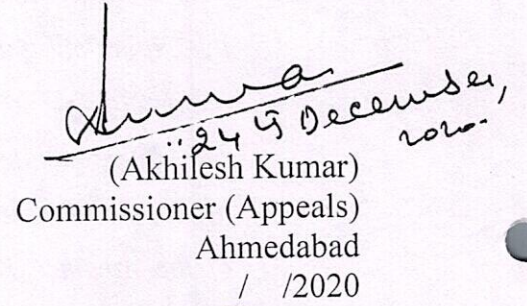 24th December,
2020.
(Akhilesh Kumar)
Commissioner (Appeals)
Ahmedabad
/ /2020